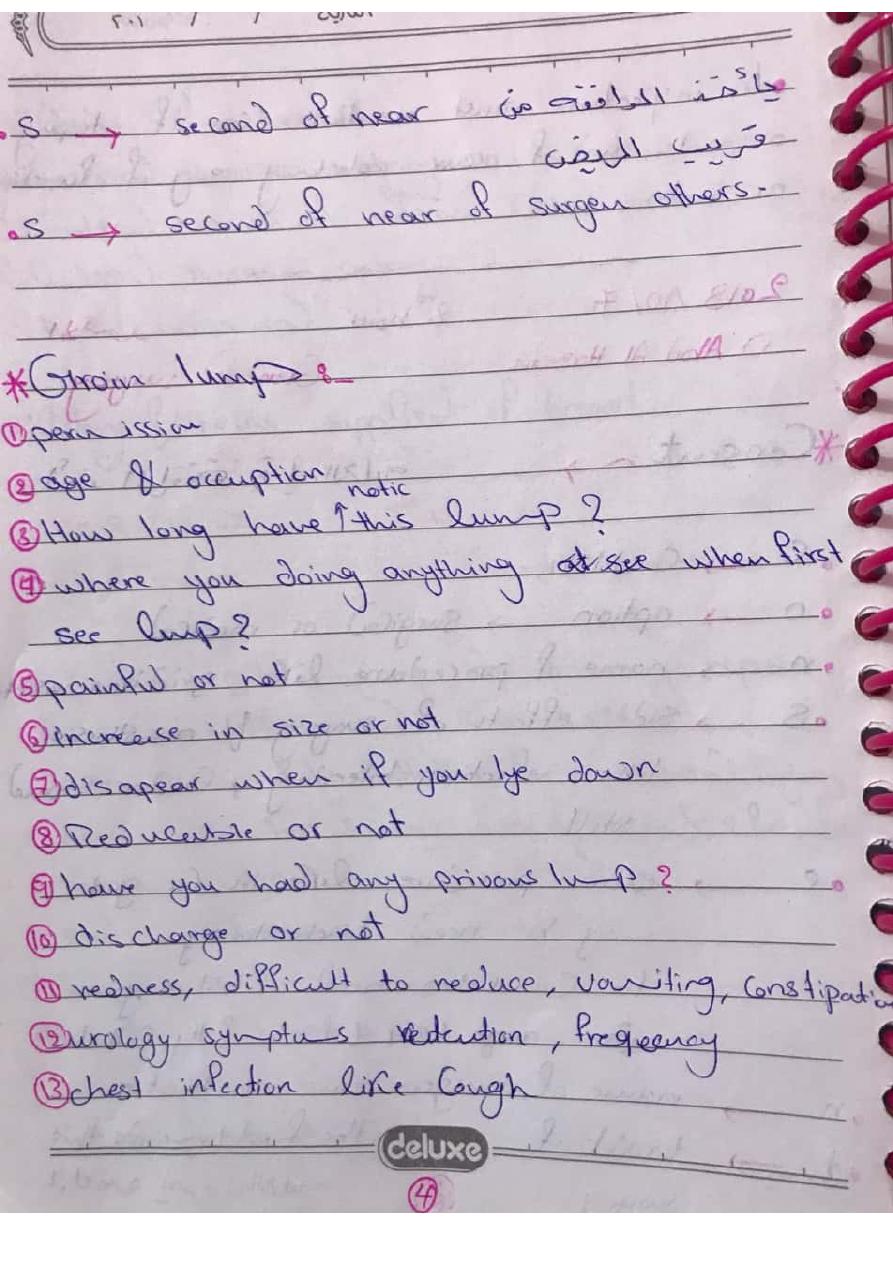 التاريخ / / ٢٠١
.S → second of near يأخذ الموافقه من
قريب المريض
.S → second of near of surgen others.
* Groin lump :-
① permission
② age & occuption
③ How long have ↑ notic this lump ?
④ where you doing anything at see when first
see lump ?
⑤ painful or not
⑥ increase in size or not
⑦ disapear when if you lye down
⑧ Reducatble or not
⑨ have you had any privous lump ?
⑩ discharge or not
⑪ redness, difficult to reduce, vomiting, Constipatio
⑫ urology symptus retention, freqeency
⑬ chest infection like Cough
deluxe
④